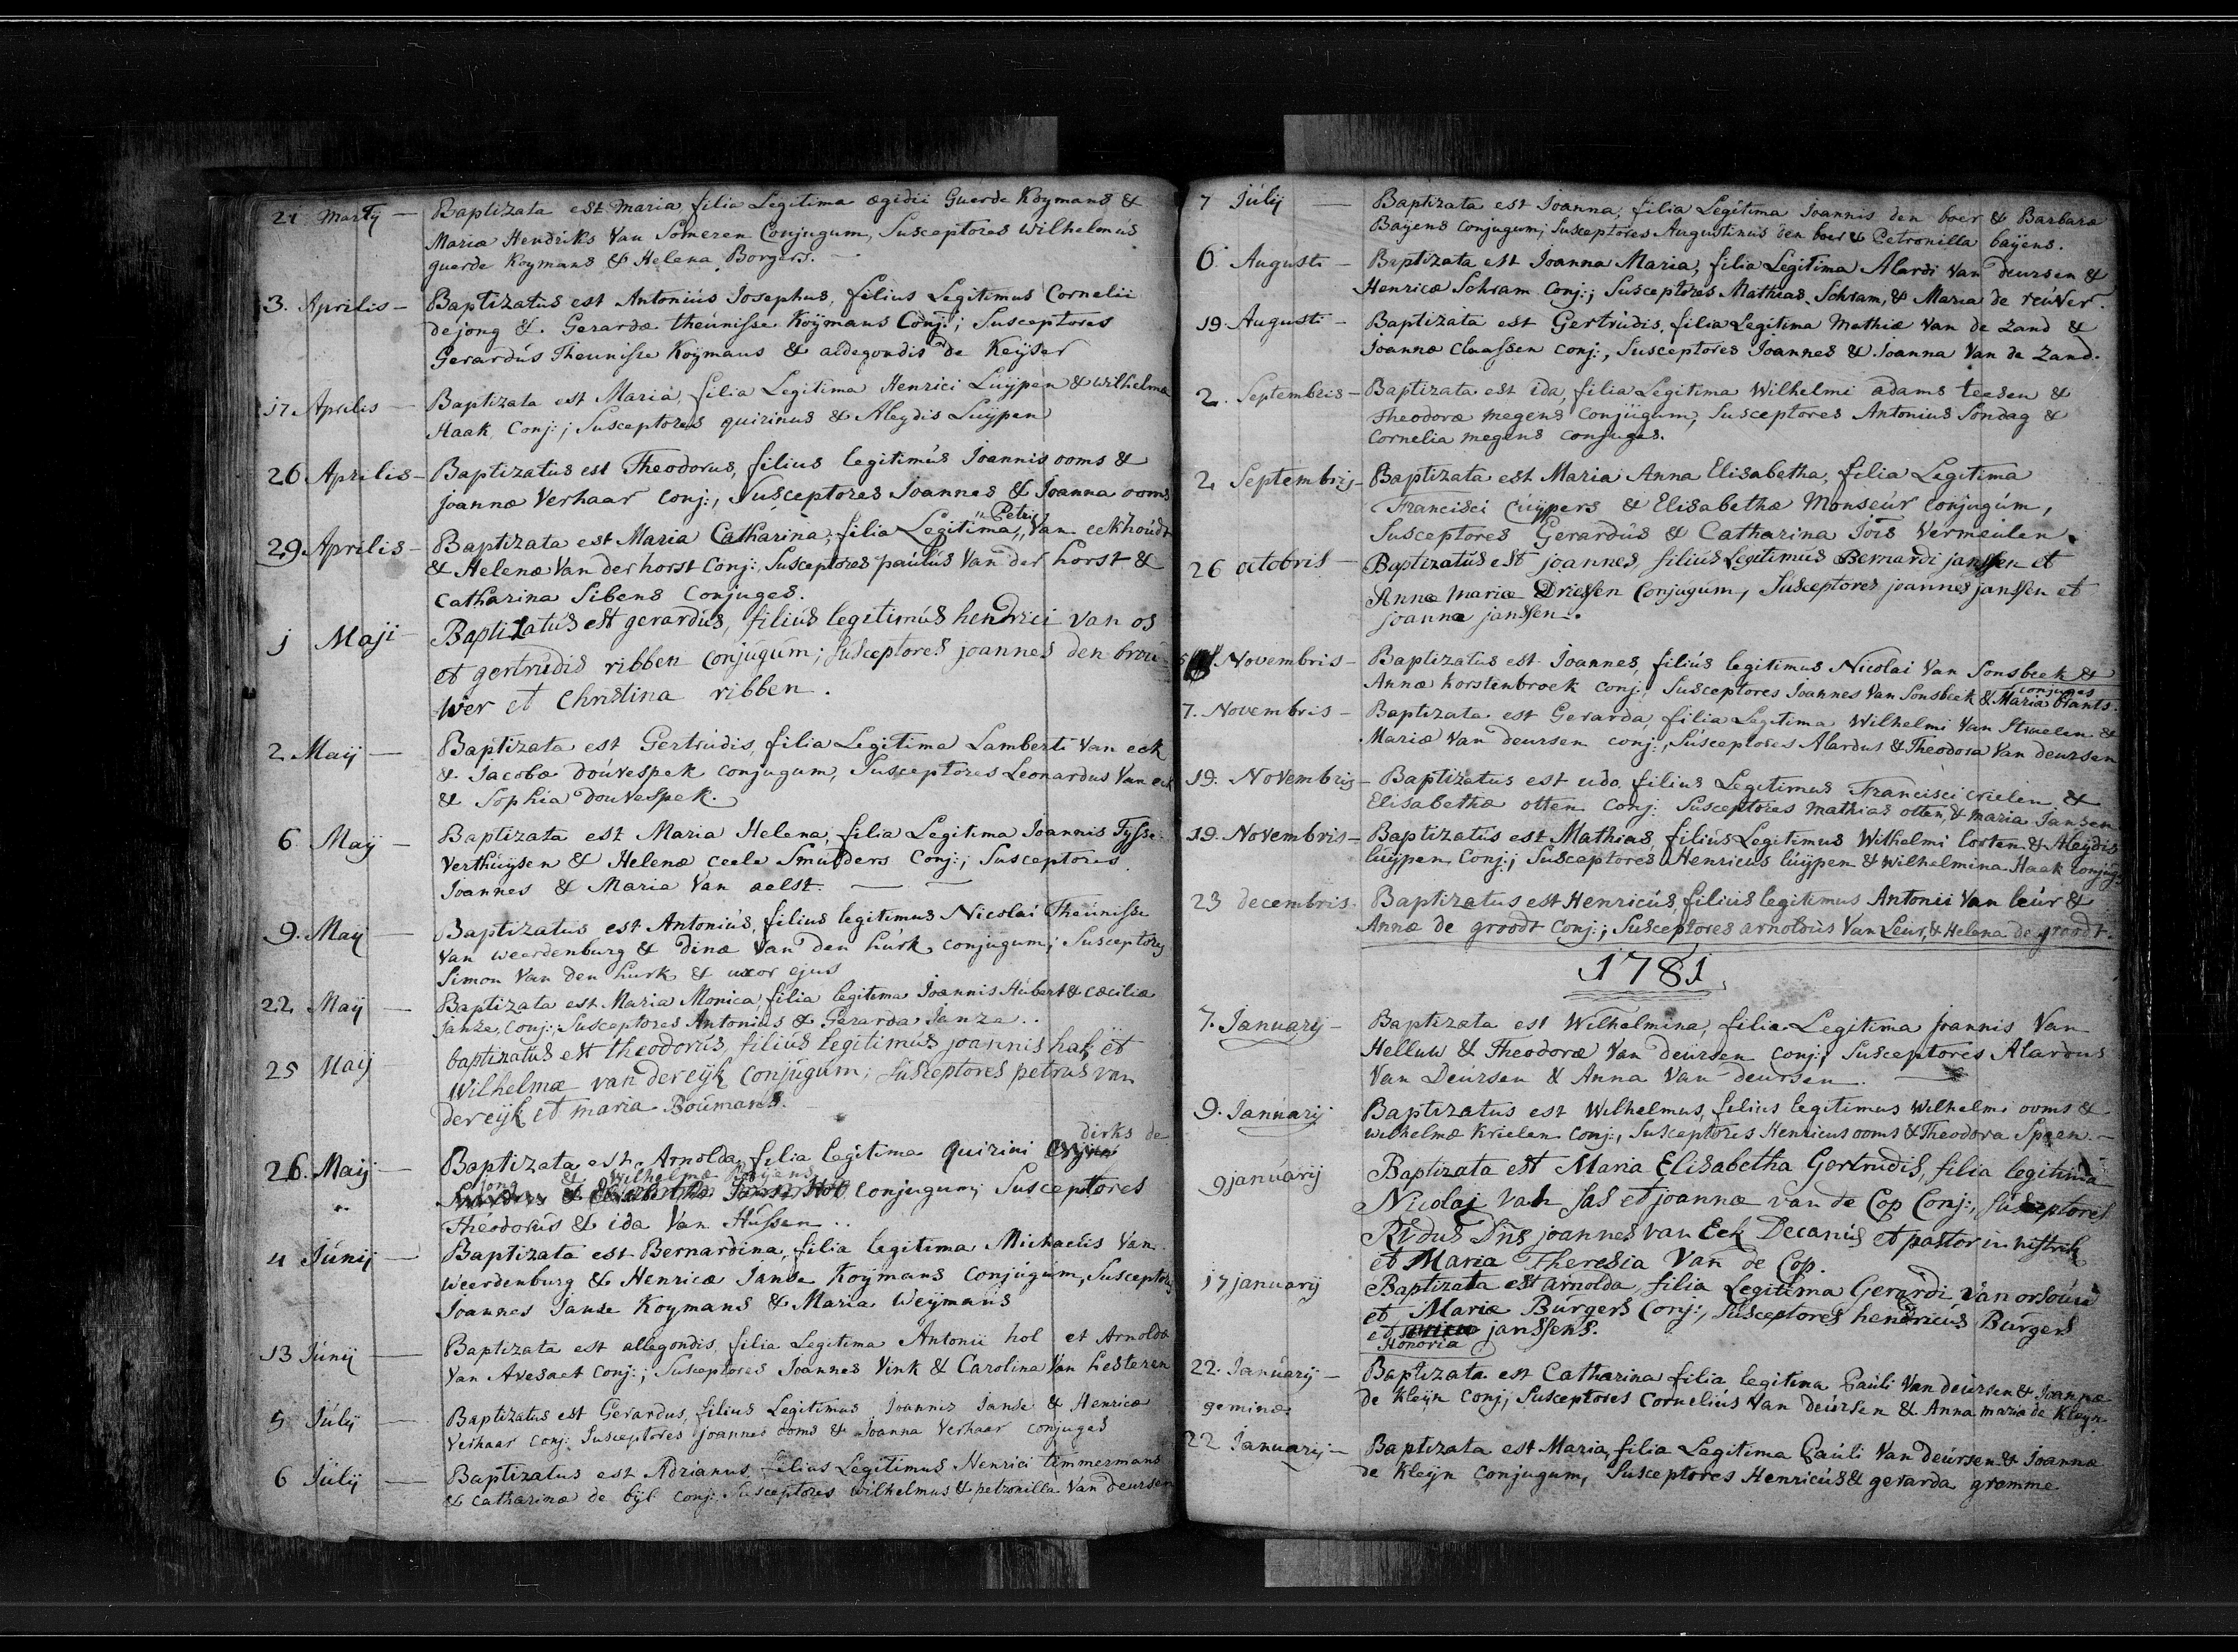 21 Martij — Baptizata est Maria, filia Legitima Ægidii Guerde Koymans &
Mariæ Hendriks Van Someren Conjugum, Susceptores Wilhelmús
guerde Koymans & Helena Borgers. —
3. Aprilis — Baptizatús est Antoniús Josephus, filius Legitimus Cornelii
de jong &. Gerardæ theúnisse Koÿmans Conj:; Susceptores
Gerardús Theunisse Koÿmans & aldegondis de Keÿser
17 Aprilis — Baptizata est Maria, filia Legitima Henrici Lúÿpen & Wilhelma
Haak, Conj:; Susceptores quirinus & Aleydis Luÿpen
26 Aprilis — Baptizatus est Theodorus, filius legitimús Joannis ooms &
joannæ Verhaar conj:, Susceptores Joannes & Joanna ooms
Petri
29 Aprilis — Baptizata est Maria Catharina, filia Legitima, Van eekhoúdt
& Helenæ Van der horst Conj:, Susceptores paúlús Van der horst &
Catharina Sibens Conjuges.
j Maji — Baptizatús est gerardús, filiús legitimús hendrici van os
et gertrúdis ribben conjúgúm; súsceptores joannes den broú-
wer et Christina ribben.
2 Maij — Baptizata est Gertrúdis, filia Legitima Lamberti Van eck
& Jacobæ doúvespek conjugum, Susceptores Leonardus Van eck
& Sophia douvespek.
6 Maÿ — Baptizata est Maria Helena, filia Legitima Joannis Tysse
Verthúÿsen & Helenæ ceele Smúlders Conj:; Susceptores
Joannes & Maria Van aelst. — —
9. Maij — Baptizatus est Antoniús, filius legitimus Nicolai Theúnisse
Van weerdenburg & dinæ Van den húrk conjugum; Susceptores
Simon Van den hurk & uxor ejus
22 Maij — Baptizata est Maria Monica, filia legitima Joannis Húbert & Cæciliæ
janze, Conj:; Susceptores Antonius & Gerarda Janze..
25 Maij — baptizatús est theodorús, filius legitimús joannis hak et
Wilhelmæ van der eijk conjúgúm; súsceptores petrus van
der eijk et maria Boúmans.
dirks de
26. Maij — Baptizata est Arnolda, filia legitima Quirini
jong & Wilhelmæ Baÿens
Conjugum; Susceptores
Theodorús & ida Van Hússen..
4 Júnij — Baptizata est Bernardina, filia legitima Michaelis Van
weerdenburg & Henricæ Janse Koÿmans Conjúgúm, Susceptores
Joannes Janse Koymans & Maria Weÿmans
13 Júnij — Baptizata est allegondis, filia Legitima Antonii hol et Arnoldæ
Van Avesaet conj:; Susceptores Joannes Vink & Carolina Van hesteren
5 Júlij — Baptizatus est Gerardus, filius Legitimus Joannis Janse & Henricæ
Verhaar conj: Susceptores joannes ooms & Joanna Verhaar conjuges
6 Júlij — Baptizatus est Adrianus filius Legitimus Henrici timmermans
& Catharinæ de bijl conj: Susceptores Wilhelmus & petronilla Van deursen
7 Júlij — Baptizata est Joanna, filia Legitima Joannis den boer & Barbaræ
Baÿens conjugum; Susceptores Augustinus den boer & Petronilla baÿens.
6 Augusti — Baptizata est Joanna Maria, filia Legitima Alardi Van deursen &
Henricæ Schram Conj:; Susceptores Mathias Schram, & Maria de reúver.
19 Augusti — Baptizata est Gertrúdis, filia Legitima Mathiæ Van de Zand &
Joannæ Claassen conj:, Susceptores Joannes & Joanna Van de Zand.
2. Septembris — Baptizata est ida, filia Legitima Wilhelmi adams teesen &
Theodoræ megens conjúgum, Susceptores Antonius Sondag &
Cornelia megens conjuges.
2 Septembris — Baptizata est Maria Anna Elisabetha, filia Legitima
Francisci Cúÿpers & Elisabethæ Monseúr Conjugúm,
Susceptores Gerardús & Catharina Jois Vermeulen.
26 octobris — Baptizatús est joannes, filiús Legitimús Bernardi janssen et
Annæ Mariæ Driessen Conjúgúm, Susceptores joannes janssen et
joanna janssen.
Novembris — Baptizatus est Joannes, filiús legitimus Nicolai Van Sonsbeek &
Annæ Korstenbroek conj:, Susceptores Joannes Van Sonsbeek & Maria brants.
conjuges
7. Novembris — Baptizata est Gerarda, filia Legitima Wilhelmi Van Straelen &
Mariæ Van deursen conj:, Súsceptores Alardus & Theodora Van deursen
19. Novembris — Baptizatus est udo, filius Legitimus Francisci crielen &
Elisabethæ otten Conj: Susceptores mathias otten, & maria Jansen
19. Novembris — Baptizatús est Mathias, filiús Legitimus Wilhelmi Corten & Aleÿdis
lúÿpen Conj:; Susceptores Henricus lúÿpen & Wilhelmina Haak Conjug:
23 decembris. Baptizatus est Henricús, filiús legitimus Antonii Van leúr &
Annæ de groodt Conj:; Susceptores arnoldús Van Leur, & Helena de groodt.
1781
7. Januarij — Baptizata est Wilhelmina, filia Legitima Joannis Van
Helluw & Theodoræ Van deúrsen conj:; Susceptores Alardus
Van Deúrsen & Anna Van deursen. —
9. Janúarij Baptizatus est Wilhelmus, filius legitimus Wilhelmi ooms &
Wilhelmæ Krielen conj:, Susceptores Henricus ooms & Theodora Spaen. —
9 janúarij Baptizata est Maria Elisabetha Gertrudis, filia legitima
Nicolaj Van Sas et joannæ van de Cop Conj:, súsceptores
Rvdus Dns joannes van Eck Decanús et pastor in nistrik
et Maria Theresia Van de Cop.
17 januarij Baptizata est arnolda, filia Legitima Gerardi van orsoúw
et Mariæ Búrgers Conj:, súsceptores henricús Búrgers
et janssens.
Honoria
22. Janúarij — Baptizata est Catharina filia legitima Paúli Van deúrsen & Joannæ
de Kleÿn Conj; Susceptores Corneliús Van deúrsen & Anna maria de Kleÿn.
geminæ
22 Januarij — Baptizata est Maria, filia Legitima Paúli Van deúrsen & Joannæ
de Kleÿn conjugum, Susceptores Henricús & gerarda gramme